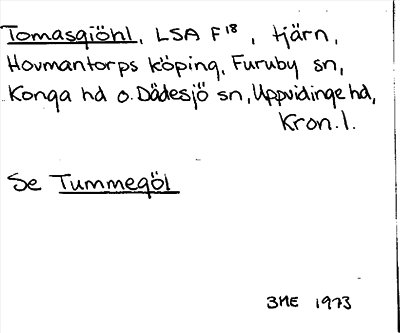 Tomasgiöhl, LSA F¹⁸, tjärn,
Hovmantorps köping, Furuby sn,
Konga hd o. Dädesjö sn, Uppvidinge hd,
Kron. l.
Se Tummegöl
BME 1973